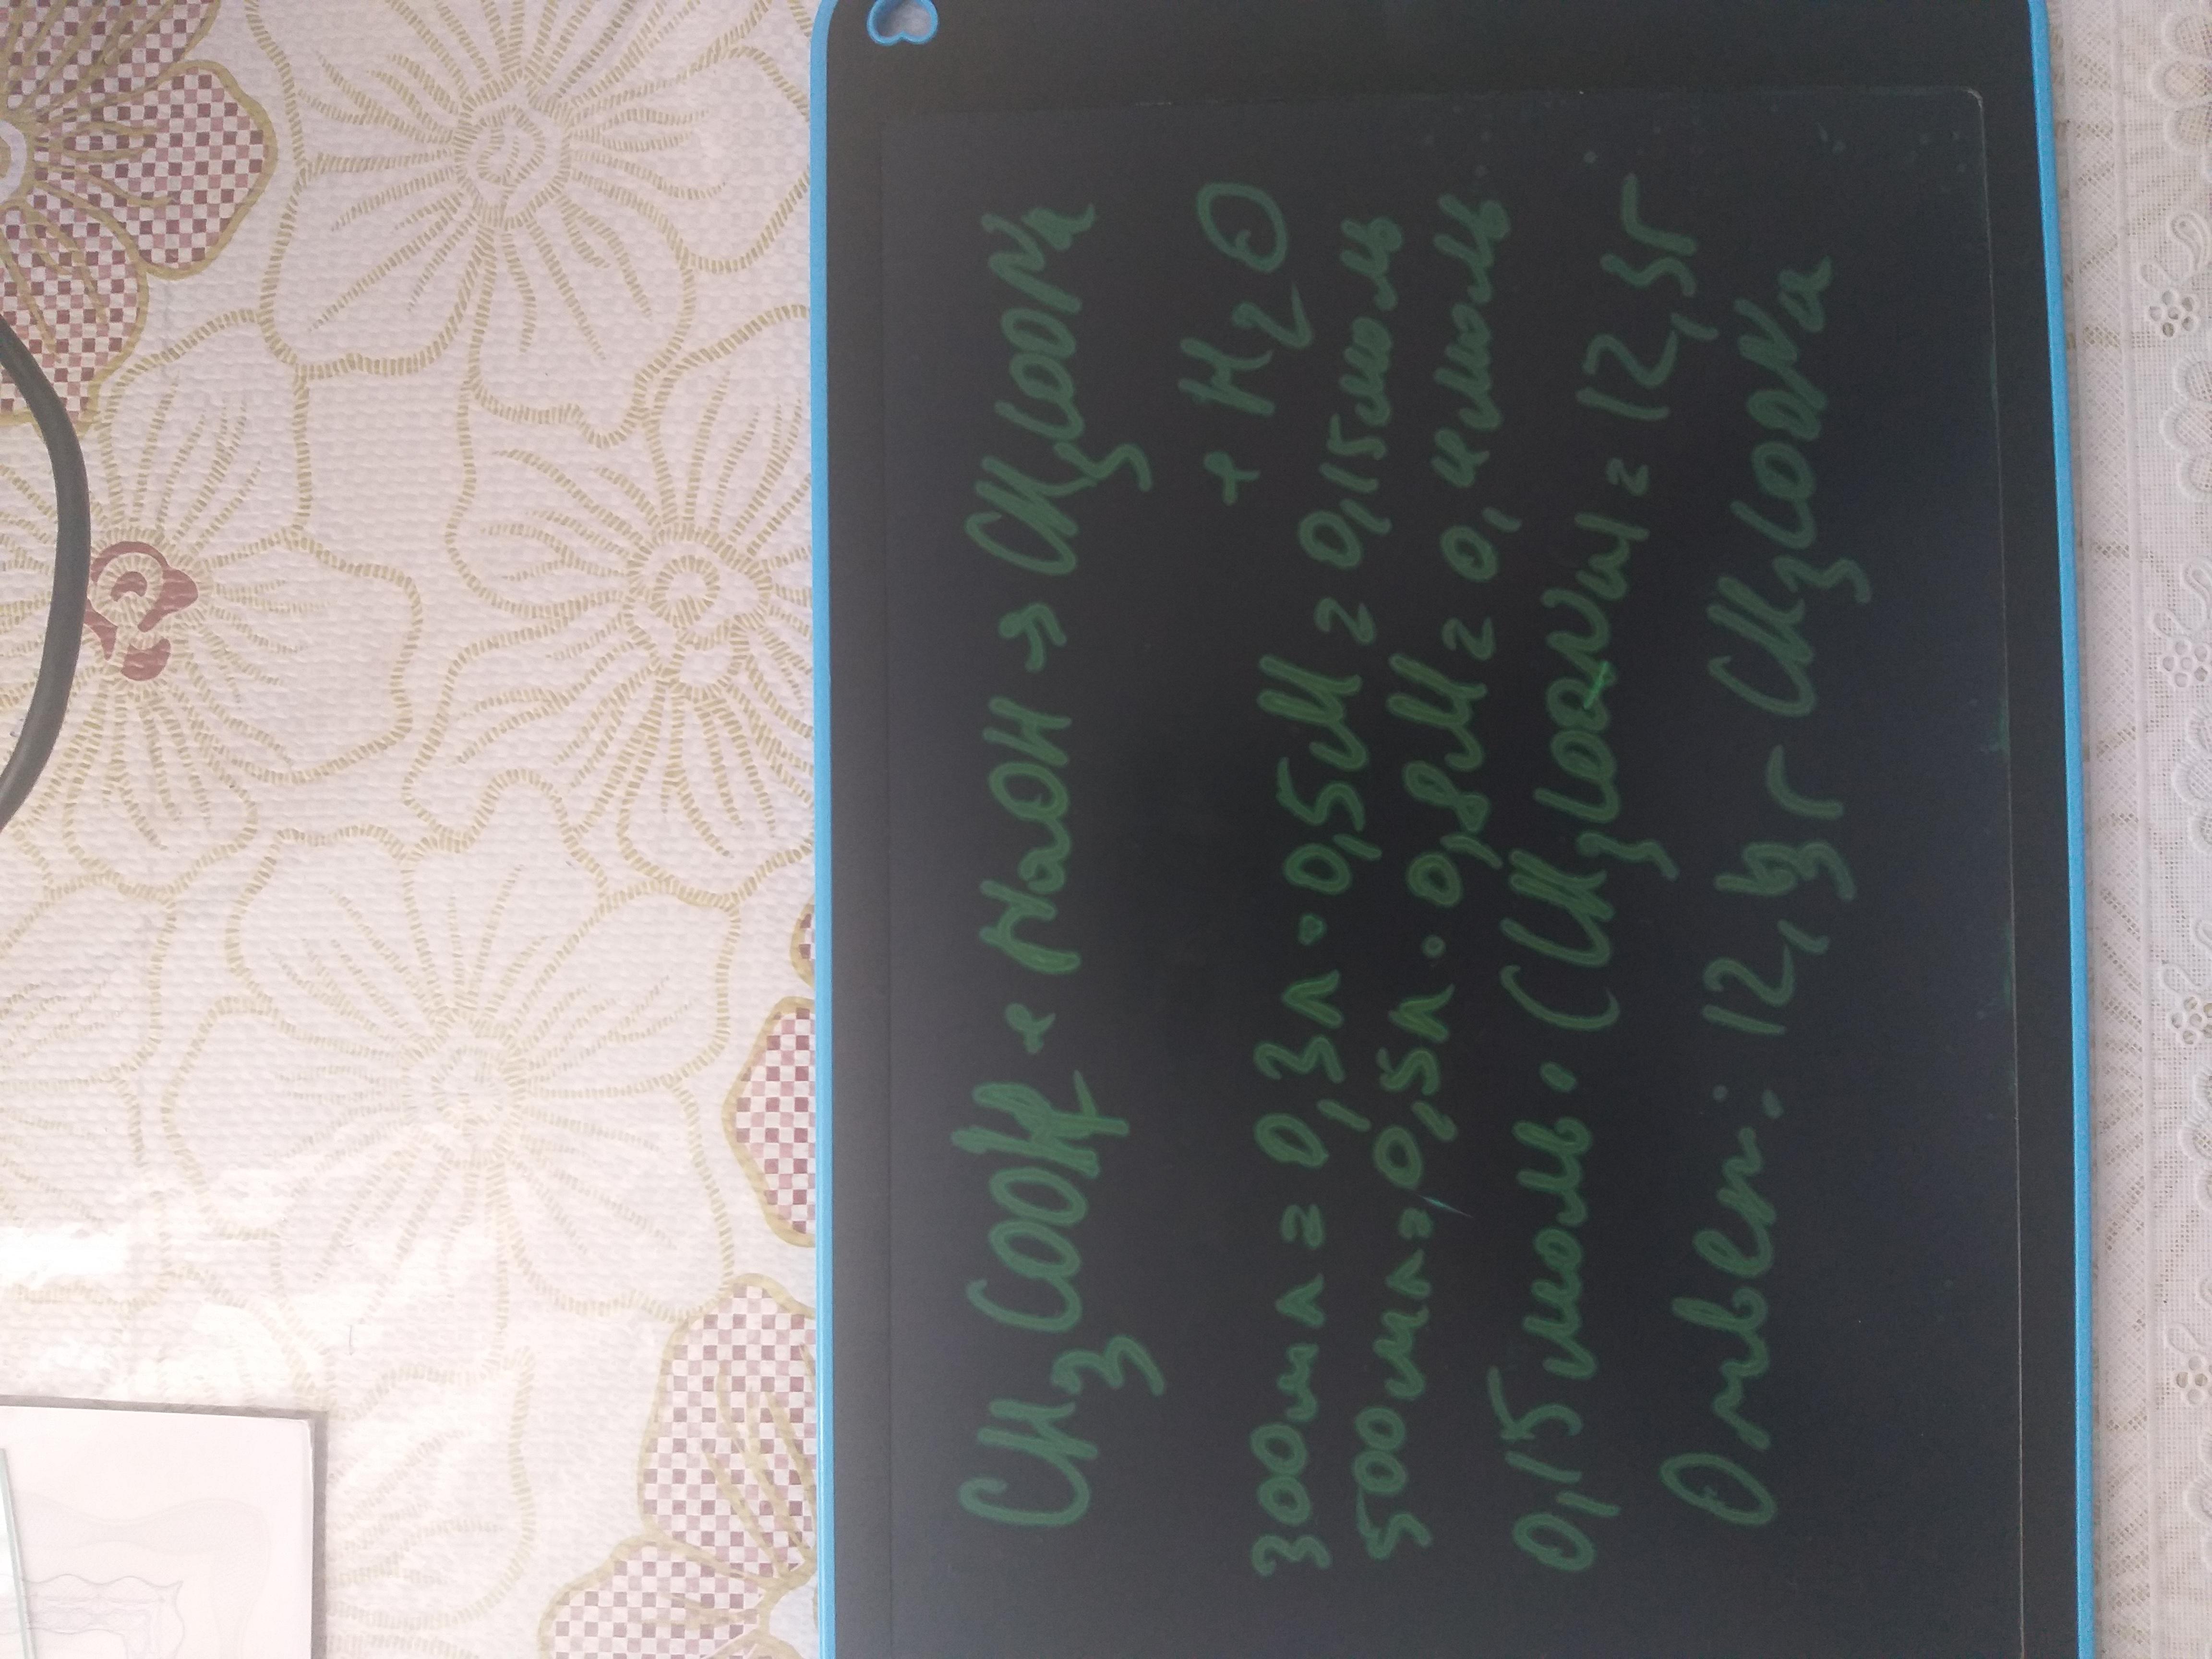 CH3COOH + NaOH → CH3COONa
+ H2O
300мл = 0,3л · 0,5М = 0,15моль
500мл = 0,5л · 0,8М = 0,4моль
0,15 моль · (CH3COONa) = 12,3г
Ответ: 12,3г CH3COONa